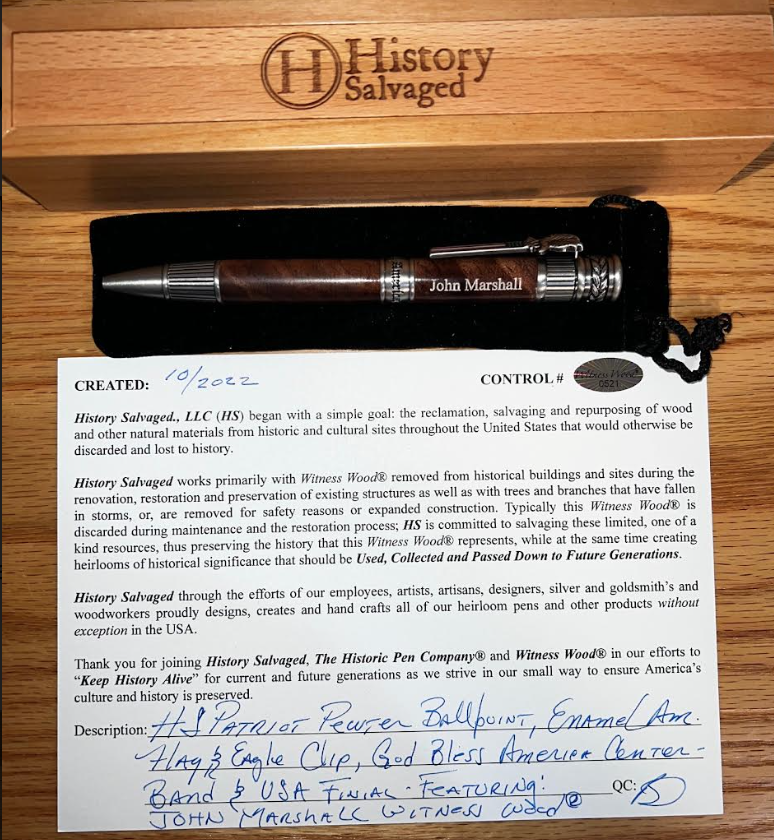 H History
Salvaged
John Marshall
CREATED: 10/2022 CONTROL # Witness Wood
0521
History Salvaged., LLC (HS) began with a simple goal: the reclamation, salvaging and repurposing of wood
and other natural materials from historic and cultural sites throughout the United States that would otherwise be
discarded and lost to history.
History Salvaged works primarily with Witness Wood® removed from historical buildings and sites during the
renovation, restoration and preservation of existing structures as well as with trees and branches that have fallen
in storms, or, are removed for safety reasons or expanded construction. Typically this Witness Wood® is
discarded during maintenance and the restoration process; HS is committed to salvaging these limited, one of a
kind resources, thus preserving the history that this Witness Wood® represents, while at the same time creating
heirlooms of historical significance that should be Used, Collected and Passed Down to Future Generations.
History Salvaged through the efforts of our employees, artists, artisans, designers, silver and goldsmith's and
woodworkers proudly designs, creates and hand crafts all of our heirloom pens and other products without
exception in the USA.
Thank you for joining History Salvaged, The Historic Pen Company® and Witness Wood® in our efforts to
“Keep History Alive” for current and future generations as we strive in our small way to ensure America’s
culture and history is preserved.
Description: HS PATRIOT PEWTER BALLPOINT, ENAMEL AM.
FLAG & EAGLE CLIP, GOD BLESS AMERICA CENTER-
BAND & USA FINIAL - FEATURING: QC:
JOHN MARSHALL WITNESS WOOD®